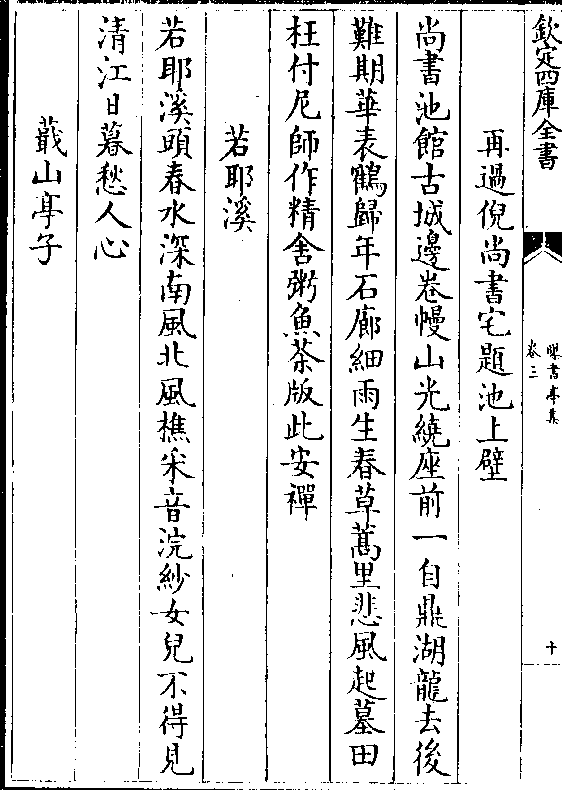 欽定四庫全書
曝書亭集
卷三
十
再過倪尚書宅題池上壁
尚書池館古城邊卷幔山光繞座前一自鼎湖龍去後
難期華表鶴歸年石廊細雨生春草蒿里悲風起墓田
枉付尼師作精舍粥魚茶版此安禪
若耶溪
若耶溪頭春水深南風北風樵采音浣紗女兒不得見
清江日暮愁人心
蕺山亭子